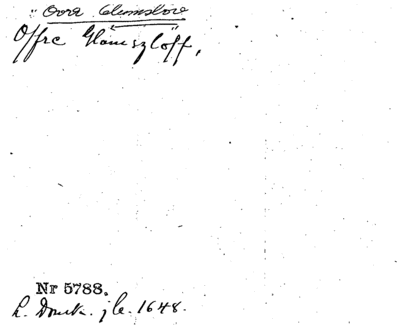 " Övra Glumslöv
Offre Glömszlöff,
Nr 5788.
L. Domk. jb. 1648.